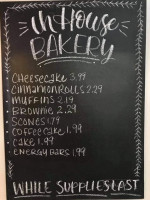 in House
BAKERY
• CHEESECAKE 3.99
• CINNAMON ROLLS 2.29
• MUFFINS 2.19
• BROWNIE 2.29
• SCONES 1.79
• COFFEE CAKE 1.99
• CAKE 1.99
• ENERGY BARS 1.99
WHILE SUPPLIES LAST